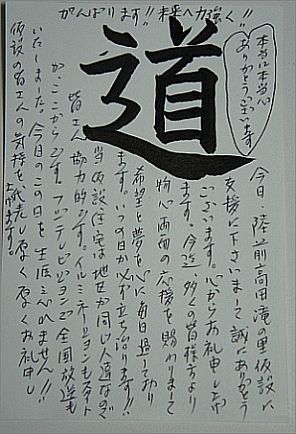 がんばります!!未来へ力強く!!
道
本当に本当に
ありがとうございます
今日、陸前高田滝の里仮設に
支援に下さいまして誠にありがとう
ございます。心からお礼申し上げ
ます。今迄、多くの皆様方より
物心両面の応援を賜わりまして
希望と夢を心に毎日過しており
ます。いつの日か必ず立ち治ります!!
当仮設住宅は地セが同じ人達なので
皆さん協力的です。イルミネーションもスタート
か、ここからです。フジテレビジョンで全国放送も
いたしました。今日のこの日を生涯忘れません!!
仮設の皆さんの気持を代表し厚く厚くお礼申し
上げます。